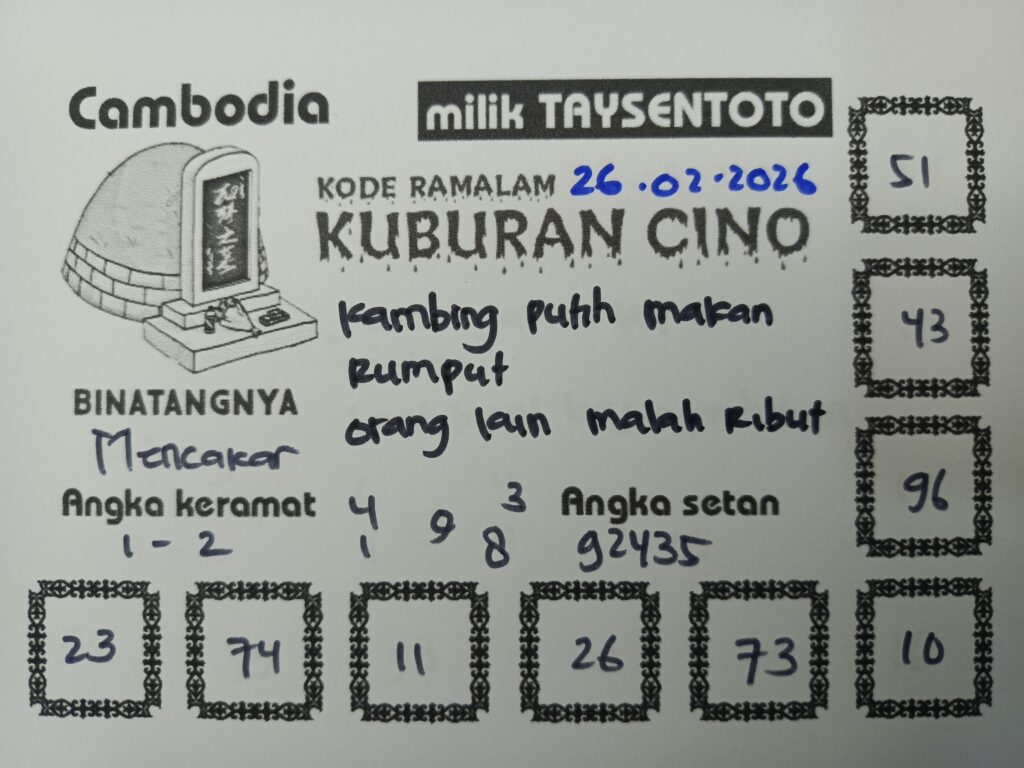 Cambodia
milik TAYSENTOTO
KODE RAMALAM 26.02.2026
KUBURAN CINO
Kambing putih makan
Rumput
orang lain malah Ribut
BINATANGNYA
Mencakar
Angka keramat
1 - 2
4 9 3
1 8
Angka setan
92435
51
43
96
23 74 11 26 73 10